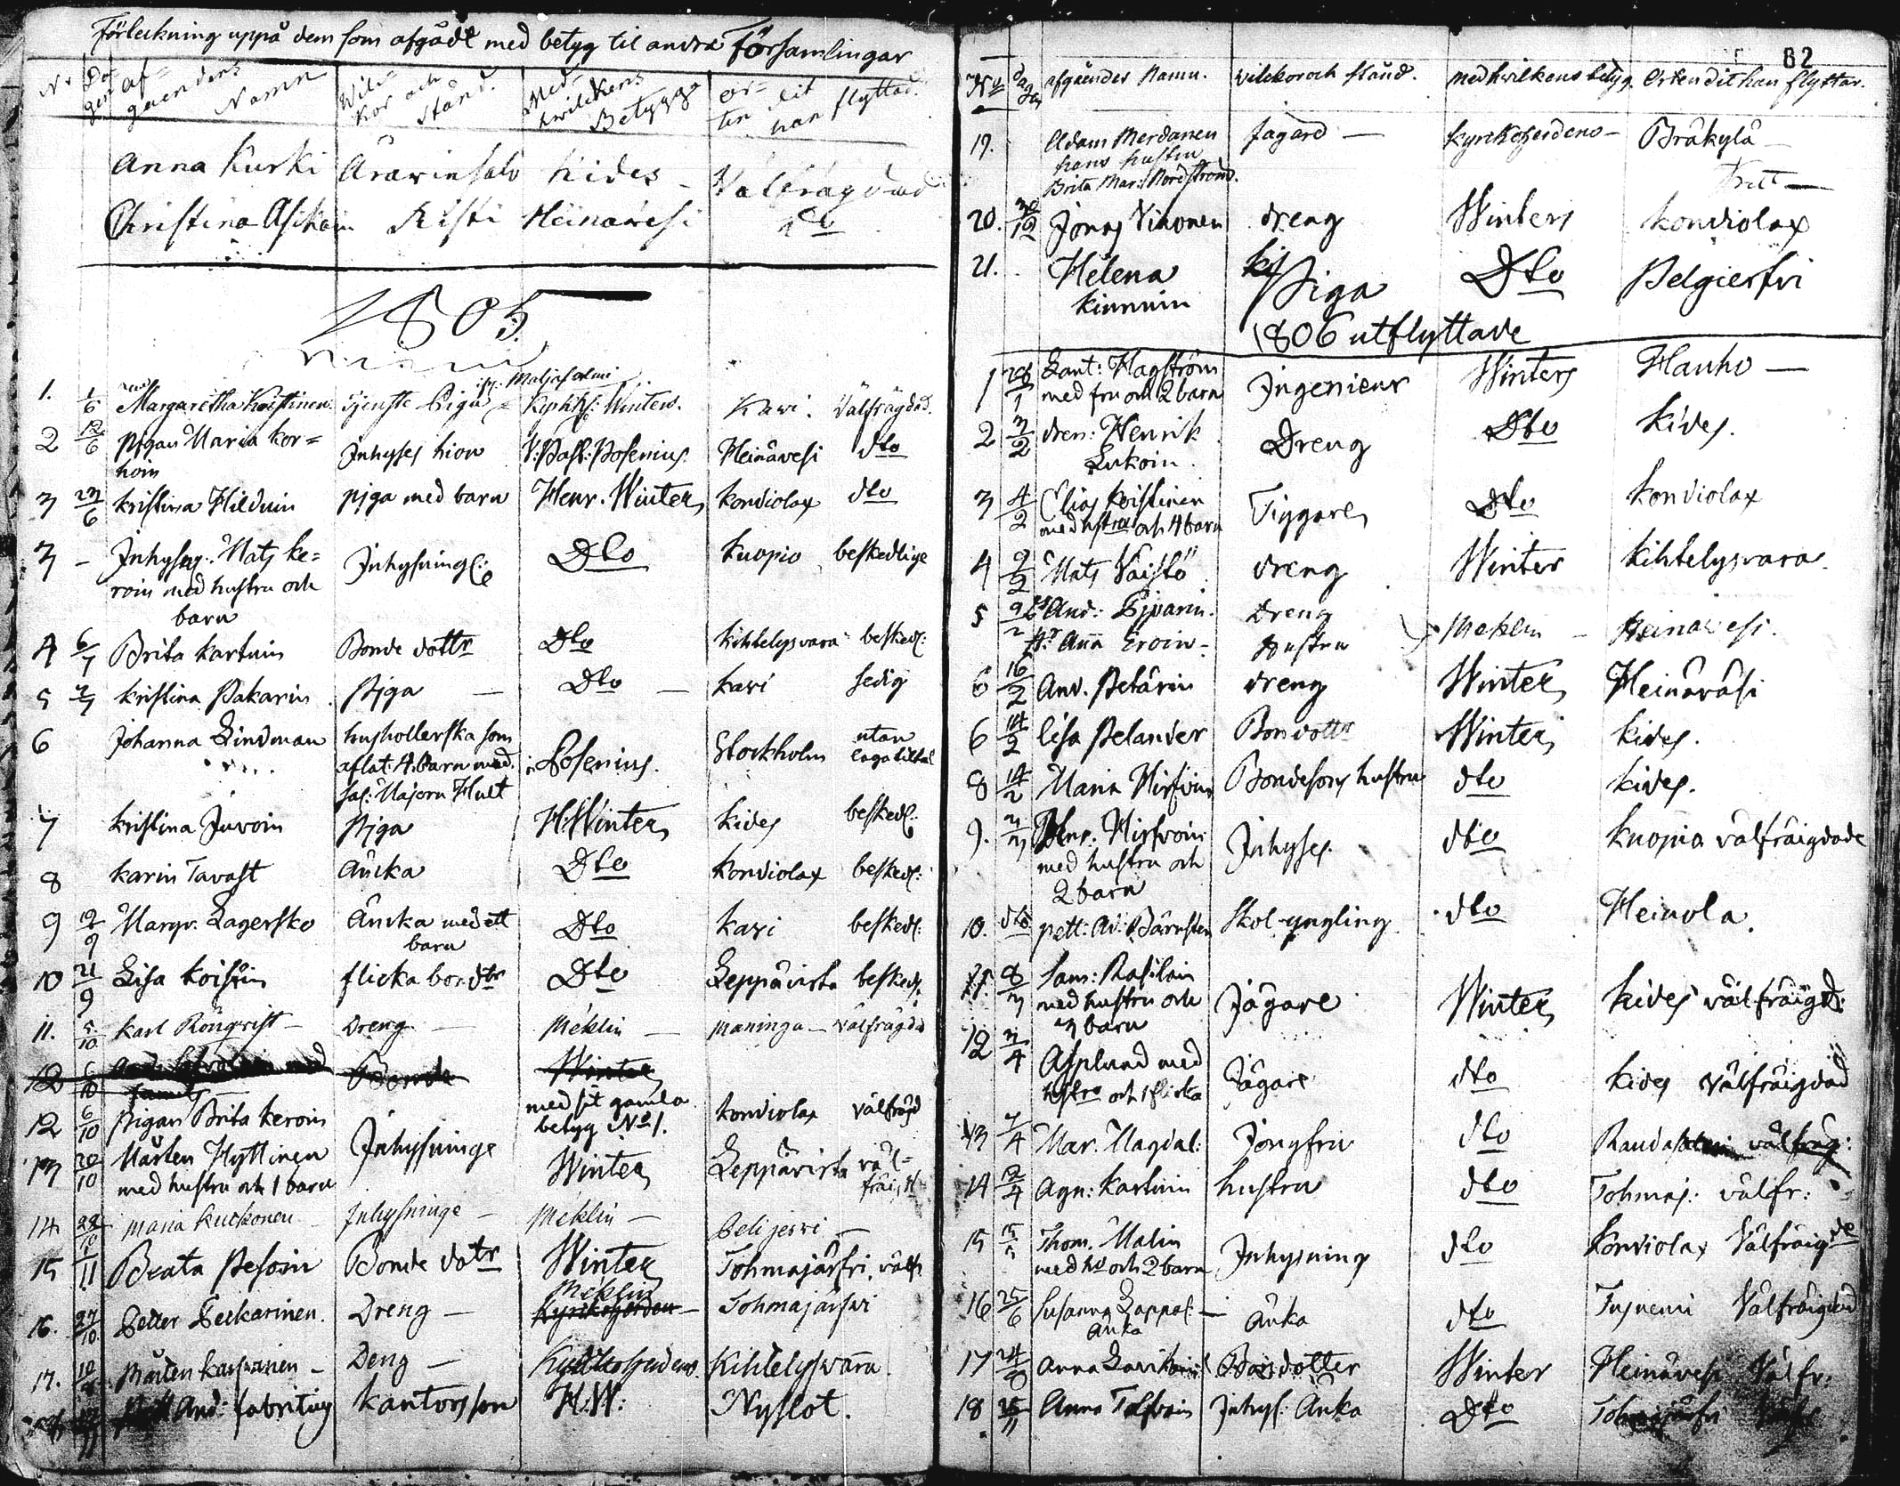 Förteckning uppå dem som afgådt med betyg til andra Församlingar
No Dagen afgåendens Namn Wilkor och stånd. Med hwilckens Betygg orten dit han flyttad.
Anna Kurki Kides Välfrägdad
Christina Asikain Risti Heinävesi Do
1805
1. 1/6 Margaretha Koistinen Tjenste Piga Winters. Kavi. Välfrägdad.
2 12/6 Pigan Maria Kor=
hoin Inhyses hion V: Past: Posenius. Heinävesi dto
3 23/6 Kristina Hilduin Piga med barn Henr. Winter Kondiolax dto
3 - Inhysng. Mats Ke=
roin med hustru och
barn Inhysning Dto Kuopio beskedlige
4 6/7 Brita Kartuin Bonde dottr Dto Kihtelysvara besked:
5 7/7 Kristina Pakarin Piga — Dto — Kavi sedig
6 Johanna Lindman hushollerska som
aflat 4 barn med
Sal: Majorn Hult Posenius. Stockholm utan
7 Kristina Juvoin Piga H: Winter Kides besked:
8 Karin Tavast Änka Dto Kondiolax besked:
9 9/9 Margr: Lagersko Änka med ett
barn Dto Kavi besked:
10 21/9 Lisa Koistin flicka bondtr Dto Leppävirta besked:
11. 5/10 Karl Rönqvist — Dreng — Meklin — Maninga — välfrägdad
12 6/10 med
familj Bonde Winter
12 6/10 Pigan Brita Keroin med sit gamla
betyg No 1. Kondiolax välfrägd
13 20/10 Mårten Hyttinen
med hustru och 1 barn Inhysninge Winter Leppävirta väl=
14 28/10 Maria Kuckonen Inhysninge — Meklin —
15 1/11 Beata Pesoin Bonde dotr Winter Tohmajärfvi. välfr
16. 27/10 Petter Peckarinen. Dreng — Meklin
Kyrckoherdens — Tohmajärfvi
17. Mårten Karvanen — Deng — Kyrckoherdens Kihtelyswara
And: Fabritius Kantors son H: W: Nyslot.
82
No dagen afgåendes Namn. Vilckor och stånd. med hvilkens betyg. Orten dit han flyttar.
19. Adam Merdanen
hans hustru
Brita Mar: Nordström. Jagare — Kyrckoherdens — Bräkylä —
20. 30/12 Jonas Vinonen dreng Winters Kondiolax
21. Helena
Kinnuin Piga Dto Pelgierfvi
1806 utflyttade
1 28/1 Lant: Hagström
med fru och 2 barn Ingenieur Winters Hauho —
2 3/2 dren: Henrik
Lukoin. Dreng Dto Kides.
3 4/2 Elias Koistinen
med hstru och 4 barn Tiggare Dto Kondiolax
4 9/2 Mats Vaistö dreng Winter Kihtelysvara.
5 9/2 And: dreng
Hr Anna Eroin = Hustru Meklin — Heinävesi.
6 16/2 And. Petärin dreng Winter Heinäväsi
6 14/2 Lisa Pelander Bondottr Winter Kides.
8 14/2 Maria Hirfvin Bondesons hustru dto Kides.
9. 3/3 Henr. Hirfvoin
med hustru och
2 barn Inhyses dto Kuopio välfräigdade
10. dto Pett: Ad: Bärnsten Skol-yngling dto Heinola
11 8/3 Sam: Rasilain
med hustru och
3 barn Jägare Winter Kides välfräigd:
12 3/4 Asplund med
hustru och 1 flicka Jägare dto Kides välfräigdad
13 7/4 Mar. Magdal: Jongfru dto Randasalmi välfräg:
14 12/4 Agn: Kartuin hustru dto Tohmaj: välfr:
15 Thom. Malin
med hu och 2 barn Inhysning dto Kondiolax Välfräigde
16 25/6 Susanna Lappal: —
Änka Änka dto Välfräigdad
17 Anna Bondotter Winter Heinävesi Välfr:
18 Anna Tolfvain Inhys: Änka Dto Tohmajärfvi